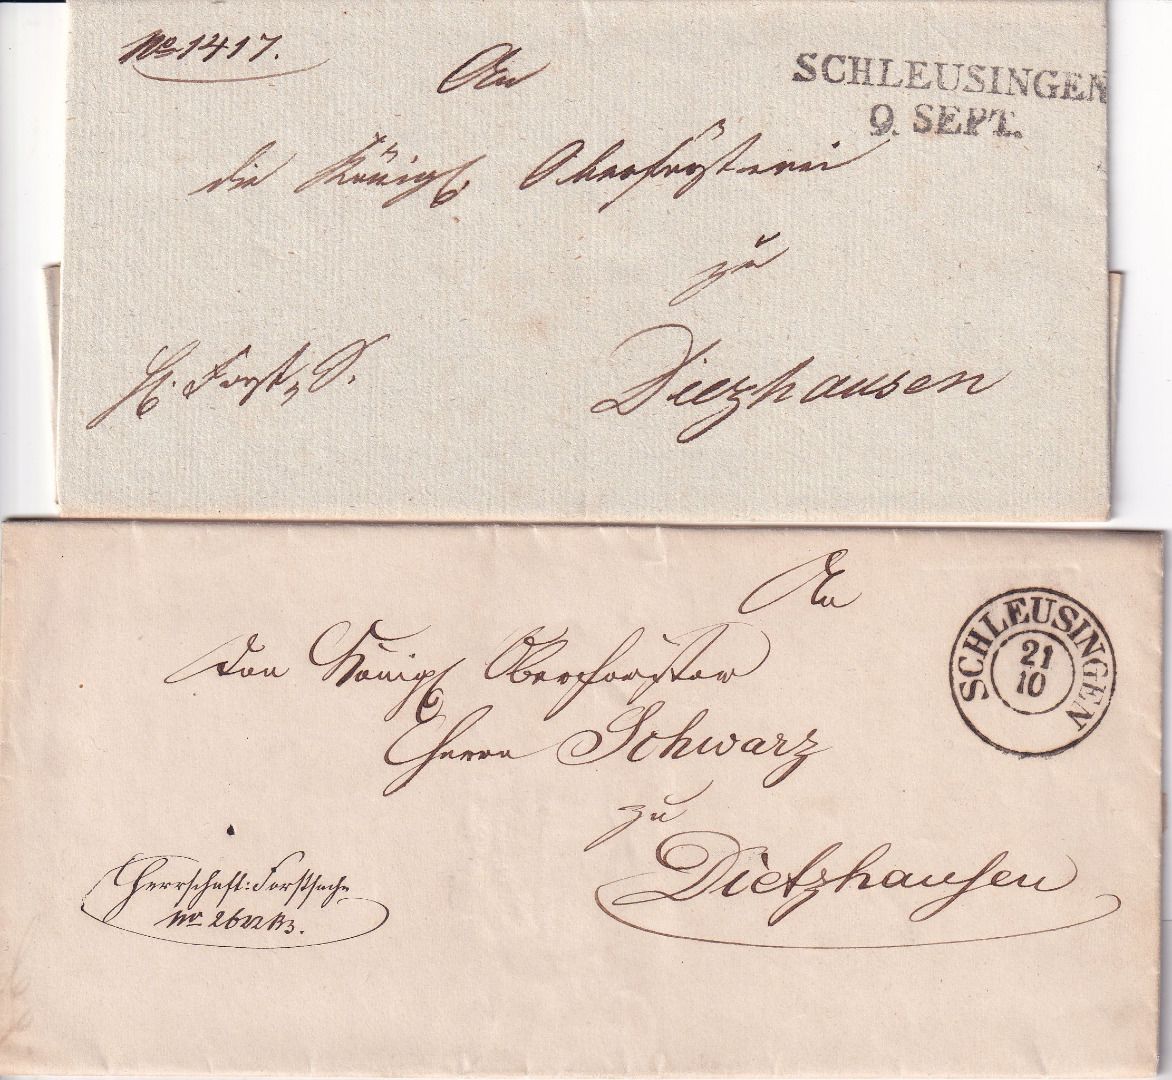 No 1417.
An
SCHLEUSINGEN
9. SEPT.
die Königl. Oberförsterei
zu
H. Forst. S.
Diezhausen
An
SCHLEUSINGEN
21
10
den Königl Oberförster
Herrn Schwarz
zu
Dietzhausen
Herrschaft: Forstsache
No